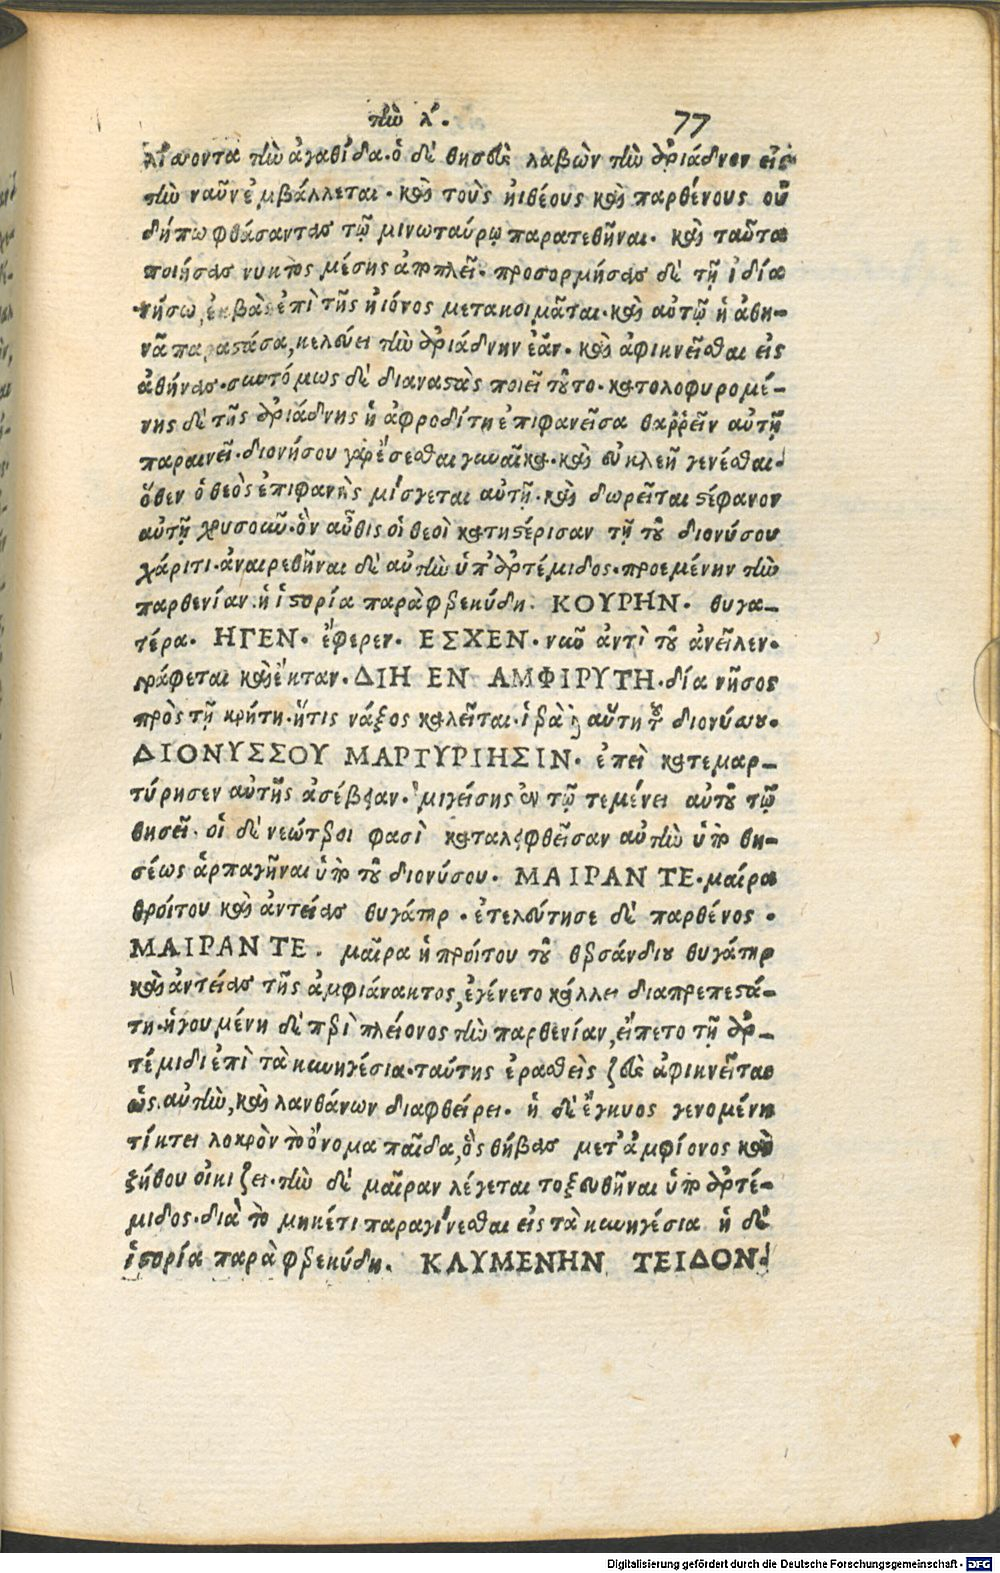 τὴν λ. 77
λίσσοντα τὴν ἀγαθίδα· ὁ δὲ θησεὺς λαβὼν τὴν ἀριάδνην εἰς
τὴν ναῦν ἐμβάλλεται· καὶ τοὺς ἠιθέους καὶ παρθένους οὐ
δήπω φθάσαντας τῷ μινωταύρῳ παρατεθῆναι· καὶ ταῦτα
ποιήσας νυκτὸς μέσης ἀποπλεῖ· προσορμήσας δὲ τῇ ἰδία
νήσω, ἐκβὰς ἐπὶ τῆς ἠιόνος μετακοιμᾶται· καὶ αὐτῷ ἡ ἀθη-
νᾶ παραστάσα, κελεύει τὴν ἀριάδνην ἐᾶν· καὶ ἀφικνεῖσθαι εἰς
ἀθήνας· συντόμως δὲ διαναστὰς ποιεῖ τοῦτο· κατολοφυρομέ-
νης δὲ τῆς ἀριάδνης ἡ ἀφροδίτη ἐπιφανεῖσα θαῤῥεῖν αὐτῇ
παραινεῖ· διονήσου γὰρ ἔσεσθαι γυναῖκα· καὶ εὐκλεῆ γενέσθαι·
ὅθεν ὁ θεὸς ἐπιφανὴς μίσγεται αὐτῇ· καὶ δωρεῖται στέφανον
αὐτῇ χρυσοῦν· ὃν αὖθις οἱ θεοὶ κατηστέρισαν τῇ τοῦ διονύσου
χάριτι· ἀναιρεθῆναι δὲ αὐτὴν ὑπ' ἀρτέμιδος· προεμένην τὴν
παρθενίαν· ἡ ἱστορία παρὰ φερεκύδη· ΚΟΥΡΗΝ· θυγα-
τέρα· ΗΓΕΝ· ἔφερεν· ΕΣΧΕΝ· νῦν ἀντὶ τοῦ ἀνεῖλεν·
γράφεται καὶ ἔκταν· ΔΙΗ ΕΝ ΑΜΦΙΡΥΤΗ· δία νῆσος
πρὸς τῇ κρήτη· ἥτις νάξος καλεῖται· ἱερὰ δὲ αὕτη τοῦ διονύσου·
ΔΙΟΝΥΣΣΟΥ ΜΑΡΤΥΡΙΗΣΙΝ· ἐπεὶ κατεμαρ-
τύρησεν αὐτῆς ἀσέβειαν· μιγείσης ἐν τῷ τεμένει αὐτοῦ τῷ
θησεῖ· οἱ δὲ νεώτεροι φασὶ καταλειφθεῖσαν αὐτὴν ὑπὸ θη-
σέως ἁρπαγῆναι ὑπὸ τοῦ διονύσου· ΜΑΙΡΑΝ ΤΕ· μαίρα
θροίτου καὶ ἀντείας θυγάτηρ· ἐτελεύτησε δὲ παρθένος·
ΜΑΙΡΑΝ ΤΕ. μαῖρα ἡ προίτου τοῦ θερσάνδρου θυγάτηρ
καὶ ἀντείας τῆς ἀμφιάνακτος, ἐγένετο κάλλει διαπρεπεστά-
τη· ἡγουμένη δὲ περὶ πλείονος τὴν παρθενίαν, εἵπετο τῇ ἀρ-
τέμιδι ἐπὶ τὰ κυνηγέσια· ταύτης ἐρασθεὶς ζεὺς ἀφικνεῖται
ὡς αὐτὴν, καὶ λανθάνων διαφθείρει· ἡ δὲ ἔγκυος γενομένη
τίκτει λοκρὸν τὸ ὄνομα παῖδα, ὃς θήβας μετ' ἀμφίονος καὶ
ζήθου οἰκίζει· τὴν δὲ μαῖραν λέγεται τοξευθῆναι ὑπὸ ἀρτέ-
μιδος· διὰ τὸ μηκέτι παραγίνεσθαι εἰς τὰ κυνηγέσια ἡ δὲ
ἱστορία παρὰ φερεκύδη. ΚΛΥΜΕΝΗΝ ΤΕΙΔΟΝ·
Digitalisierung gefördert durch die Deutsche Forschungsgemeinschaft - DFG